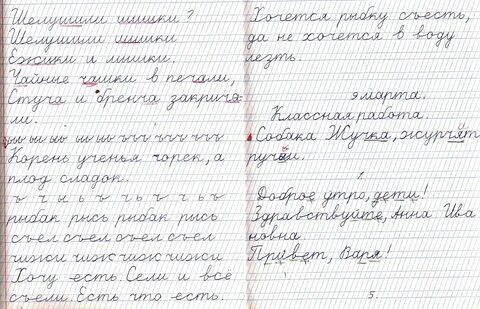 Шелушили шишки?
Шелушили шишки
ёжики и мишки.
Чайные чашки в печали,
Стуча и бренча закрича-
ли.
Корень ученья горек, а
плод сладок.
ъ ч ы ь ч ъ ч ь ъ
рыбак рысь рыбак рысь
съел съел съел съел
чижи чижи чижи чижи
Хочу есть. Сели и всё
съели. Есть что есть.
Хочется рыбку съесть,
да не хочется в воду
лезть.
9 марта.
Классная работа
Собака Жучка, журчат
ручьи.
Доброе утро, дети!
Здравствуйте, Анна Ива
новна
Привет, Варя!
5.